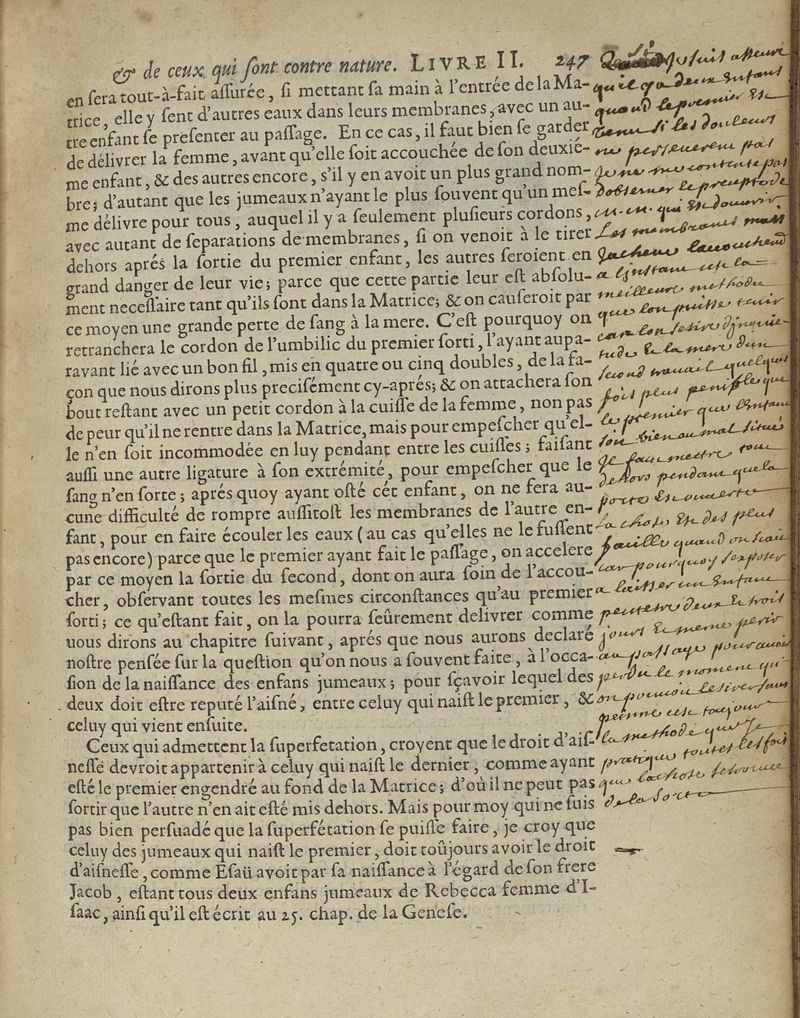 & de ceux qui ſont contre nature. LIVRE II. 247
en ſera tout-à-fait aſſurée, ſi mettant ſa main à l'entrée de la Ma-
trice, elle y ſent d'autres eaux dans leurs membranes, avec un au-
tre enfant ſe preſenter au paſſage. En ce cas, il faut bien ſe garder
de délivrer la femme, avant qu'elle ſoit accouchée de ſon deuxié-
me enfant, & des autres encore, s'il y en avoit un plus grand nom-
bre; d'autant que les jumeaux n'ayant le plus ſouvent qu'un meſ-
me délivre pour tous, auquel il y a ſeulement pluſieurs cordons,
avec autant de ſeparations de membranes, ſi on venoit à le tirer
dehors aprés la ſortie du premier enfant, les autres ſeroient en
grand danger de leur vie; parce que cette partie leur eſt abſolu-
ment neceſſaire tant qu'ils ſont dans la Matrice; & on cauſeroit par
ce moyen une grande perte de ſang à la mere. C'eſt pourquoy on
retranchera le cordon de l'umbilic du premier ſorti, l'ayant aupa-
ravant lié avec un bon fil, mis en quatre ou cinq doubles, de la fa-
çon que nous dirons plus preciſément cy-aprés; & on attachera ſon
bout reſtant avec un petit cordon à la cuiſſe de la femme, non pas
de peur qu'il ne rentre dans la Matrice, mais pour empeſcher qu'el-
le n'en ſoit incommodée en luy pendant entre les cuiſſes; faiſant
auſſi une autre ligature à ſon extrémité, pour empeſcher que le
ſang n'en ſorte; aprés quoy ayant oſté cét enfant, on ne fera au-
cune difficulté de rompre auſſitoſt les membranes de l'autre en-
fant, pour en faire écouler les eaux (au cas qu'elles ne le fuſſent
pas encore) parce que le premier ayant fait le paſſage, on accelere
par ce moyen la ſortie du ſecond, dont on aura ſoin de l'accou-
cher, obſervant toutes les meſmes circonſtances qu'au premier
ſorti; ce qu'eſtant fait, on la pourra ſeûrement delivrer comme
nous dirons au chapitre ſuivant, aprés que nous aurons declaré
noſtre penſée ſur la queſtion qu'on nous a ſouvent faite, à l'occa-
ſion de la naiſſance des enfans jumeaux; pour ſçavoir lequel des
deux doit eſtre reputé l'aiſné, entre celuy qui naiſt le premier, &
celuy qui vient enſuite.
Ceux qui admettent la ſuperfetation, croyent que le droit d'aiſ-
neſſe devroit appartenir à celuy qui naiſt le dernier, comme ayant
eſté le premier engendré au fond de la Matrice; d'où il ne peut pas
ſortir que l'autre n'en ait eſté mis dehors. Mais pour moy qui ne ſuis
pas bien perſuadé que la ſuperfétation ſe puiſſe faire, je croy que
celuy des jumeaux qui naiſt le premier, doit toûjours avoir le droit
d'aiſneſſe, comme Eſaü avoit par ſa naiſſance à l'égard de ſon frere
Jacob, eſtant tous deux enfans jumeaux de Rebecca femme d'I-
ſaac, ainſi qu'il eſt écrit au 25. chap. de la Geneſe.
je suis asseuré
qu'il y a deux enfans
quand le premier est
venu si les douleurs
ne perseverent pas
je ne me contente pas
d'observer le precepte de
qui est d'ouvrir
les membranes mais
l'instant est la
meilleure methode
que l'on puisse tenir
car l'on se tire d'inquie-
tude & la mere d'un
second travail quelques
fois plus penible que
le premier que l'enfant
soit bien ou mal situé
dehors pendant que la
porte est ouverte
la chose est des plus
facille quand on scait
car pourquoy s'exposer
a laisser un enfant
peutetre deux et trois
jours & meme perir
au passage pour avoir
perdu le moment qu'
on pouvoit le tirer sans
peinne c'est toujour
la methode que je
pratique toutes les fois
que la chose se trouve
de la sorte